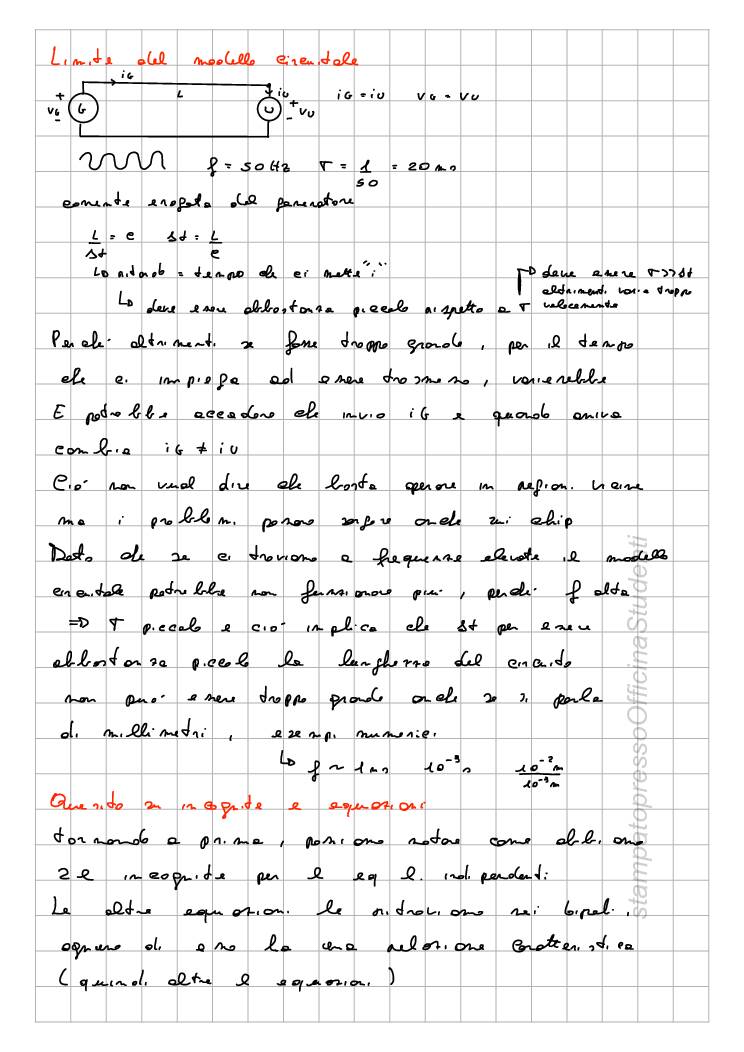 Limite del modello circuitale
iG
L
iU
+ VG - G
U + VU -
iG = iU VG = VU
f = 50 Hz T = 1/50 = 20 ms
corrente erogata dal generatore
L/Δt = c Δt = L/c
↳ ritardo = tempo che ci mette "i"
↳ deve essere abbastanza piccolo rispetto a T
deve essere T>>Δt
altrimenti varia troppo
velocemente
Perché altrimenti se fosse troppo grande, per il tempo
che ci impiega ad essere trasmesso, varierebbe
E potrebbe accadere che invio iG e quando arriva
cambia iG ≠ iU
Ciò non vuol dire che basta operare in regioni vicine
ma i problemi possono sorgere anche sui chip
Dato che se ci troviamo a frequenze elevate il modello
circuitale potrebbe non funzionare più, perché f alta
=> T piccolo e ciò implica che Δt per essere
abbastanza piccolo la lunghezza del circuito
non può essere troppo grande anche se si parla
di millimetri, esempi numerici
↳ f ~ 1ns 10⁻⁹s 10⁻²m/10⁻³m
Quesito su incognite e equazioni
tornando a prima, possiamo notare come abbiamo
2l incognite per l eq l. indipendenti
Le altre equazioni le ritroviamo nei bipoli,
ognuno di esso ha una relazione caratteristica
(quindi altre l equazioni)
stampatopressoOfficinaStudenti